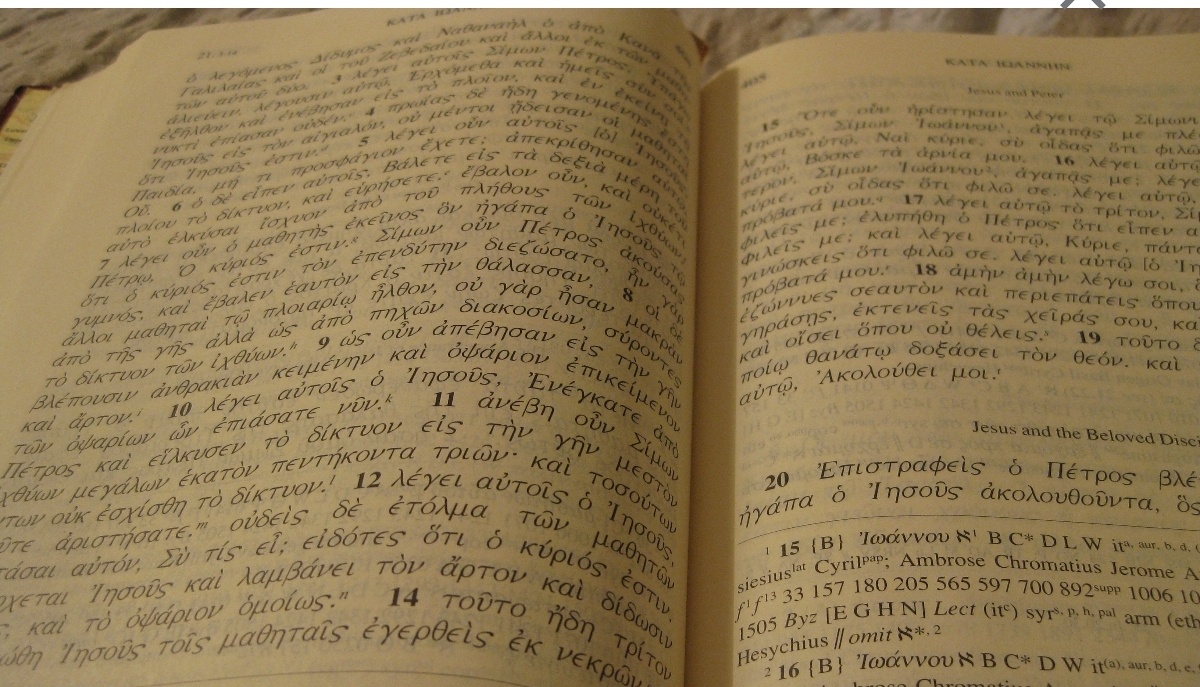 ΚΑΤΑ ΙΩΑΝΝΗΝ
ὁ λεγόμενος Δίδυμος καὶ Ναθαναὴλ ὁ ἀπὸ Κανὰ
Γαλιλαίας καὶ οἱ τοῦ Ζεβεδαίου καὶ ἄλλοι ἐκ τῶν
τῶν αὐτοῦ δύο. 3 λέγει αὐτοῖς Σίμων Πέτρος, Ὑπάγω
ἁλιεύειν. λέγουσιν αὐτῷ, Ἐρχόμεθα καὶ ἡμεῖς σὺν σοί.
ἐξῆλθον καὶ ἐνέβησαν εἰς τὸ πλοῖον, καὶ ἐν ἐκείνῃ
νυκτὶ ἐπίασαν οὐδέν. 4 πρωΐας δὲ ἤδη γενομένης
Ἰησοῦς εἰς τὸν αἰγιαλόν, οὐ μέντοι ᾔδεισαν οἱ μαθηταὶ
ὅτι Ἰησοῦς ἐστιν. 5 λέγει οὖν αὐτοῖς [ὁ] Ἰησοῦς,
Παιδία, μή τι προσφάγιον ἔχετε; ἀπεκρίθησαν αὐτῷ,
Οὔ. 6 ὁ δὲ εἶπεν αὐτοῖς, Βάλετε εἰς τὰ δεξιὰ μέρη τοῦ
πλοίου τὸ δίκτυον, καὶ εὑρήσετε. ἔβαλον οὖν, καὶ οὐκέτι
αὐτὸ ἑλκύσαι ἴσχυον ἀπὸ τοῦ πλήθους τῶν ἰχθύων.
7 λέγει οὖν ὁ μαθητὴς ἐκεῖνος ὃν ἠγάπα ὁ Ἰησοῦς τῷ
Πέτρῳ, Ὁ κύριός ἐστιν. Σίμων οὖν Πέτρος ἀκούσας
ὅτι ὁ κύριός ἐστιν τὸν ἐπενδύτην διεζώσατο, ἦν γὰρ
γυμνός, καὶ ἔβαλεν ἑαυτὸν εἰς τὴν θάλασσαν, 8 οἱ δὲ
ἄλλοι μαθηταὶ τῷ πλοιαρίῳ ἦλθον, οὐ γὰρ ἦσαν μακρὰν
ἀπὸ τῆς γῆς ἀλλὰ ὡς ἀπὸ πηχῶν διακοσίων, σύροντες
τὸ δίκτυον τῶν ἰχθύων.ʰ 9 ὡς οὖν ἀπέβησαν εἰς τὴν γῆν
βλέπουσιν ἀνθρακιὰν κειμένην καὶ ὀψάριον ἐπικείμενον
καὶ ἄρτον.ⁱ 10 λέγει αὐτοῖς ὁ Ἰησοῦς, Ἐνέγκατε ἀπὸ
τῶν ὀψαρίων ὧν ἐπιάσατε νῦν.ᵏ 11 ἀνέβη οὖν Σίμων
Πέτρος καὶ εἵλκυσεν τὸ δίκτυον εἰς τὴν γῆν μεστὸν
χθύων μεγάλων ἑκατὸν πεντήκοντα τριῶν· καὶ τοσούτων
των οὐκ ἐσχίσθη τὸ δίκτυον.ˡ 12 λέγει αὐτοῖς ὁ Ἰησοῦς,
ῦτε ἀριστήσατε.ᵐ οὐδεὶς δὲ ἐτόλμα τῶν μαθητῶν
τάσαι αὐτόν, Σὺ τίς εἶ; εἰδότες ὅτι ὁ κύριός ἐστιν.
ρχεται Ἰησοῦς καὶ λαμβάνει τὸν ἄρτον καὶ δίδωσιν
ς, καὶ τὸ ὀψάριον ὁμοίως.ⁿ 14 τοῦτο ἤδη τρίτον
ώθη Ἰησοῦς τοῖς μαθηταῖς ἐγερθεὶς ἐκ νεκρῶν.
ΚΑΤΑ ΙΩΑΝΝΗΝ
Jesus and Peter
15 Ὅτε οὖν ἠρίστησαν λέγει τῷ Σίμωνι
Ἰησοῦς, Σίμων Ἰωάννου¹, ἀγαπᾷς με
λέγει αὐτῷ, Ναὶ κύριε, σὺ οἶδας ὅτι φιλῶ
αὐτῷ, Βόσκε τὰ ἀρνία μου. 16 λέγει αὐτῷ
τερον, Σίμων Ἰωάννου², ἀγαπᾷς με; λέγει
κύριε, σὺ οἶδας ὅτι φιλῶ σε. λέγει αὐτῷ,
πρόβατά μου. 17 λέγει αὐτῷ τὸ τρίτον,
φιλεῖς με; ἐλυπήθη ὁ Πέτρος ὅτι εἶπεν
φιλεῖς με; καὶ λέγει αὐτῷ, Κύριε, πάντα
γινώσκεις ὅτι φιλῶ σε. λέγει αὐτῷ [ὁ
πρόβατά μου. 18 ἀμὴν ἀμὴν λέγω σοι,
ἐζώννυες σεαυτὸν καὶ περιεπάτεις ὅπου
γηράσῃς, ἐκτενεῖς τὰς χεῖράς σου, κα
καὶ οἴσει ὅπου οὐ θέλεις. 19 τοῦτο
ποίῳ θανάτῳ δοξάσει τὸν θεόν. καὶ
αὐτῷ, Ἀκολούθει μοι.
Jesus and the Beloved Disci
20 Ἐπιστραφεὶς ὁ Πέτρος βλέ
ἠγάπα ὁ Ἰησοῦς ἀκολουθοῦντα, ὃς
¹ 15 {B} Ἰωάννου ℵ¹ B C* D L W itᵃ, ᵃᵘʳ, ᵇ, ᵈ,
siesiusˡᵃᵗ Cyrilᵖᵃᵖ; Ambrose Chromatius Jerome A
f¹ f¹³ 33 157 180 205 565 597 700 892ˢᵘᵖᵖ 1006 10
1505 Byz [E G H N] Lect (itᶜ) syrˢ, ᵖ, ʰ, ᵖᵃˡ arm (eth
Hesychius // omit ℵ*,²
² 16 {B} Ἰωάννου ℵ B C* D W it⁽ᵃ⁾, ᵃᵘʳ, ᵇ, ᵈ, ᵉ,